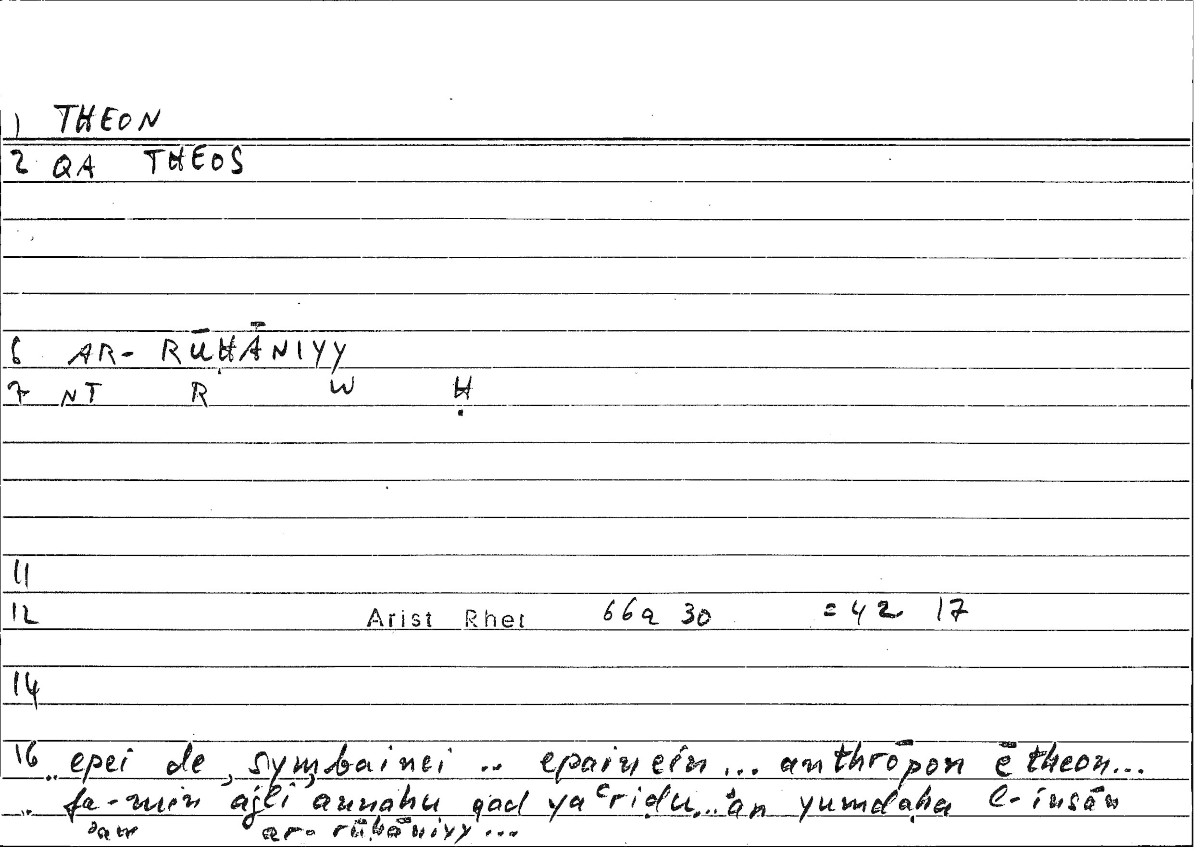 1 THEON
2 QA THEOS
6 AR- RŪḤĀNIYY
7 NT R W Ḥ
11
12 Arist Rhet 66a 30 = 42 17
14
16 .. epei de symbainei .. epainein ... anthrōpon ē theon...
.. fa-min ʾaǧli ʾannahu qad yaʿriḍu .. ʾan yumdaḥa l-insān
ʾaw ar-rūḥāniyy...